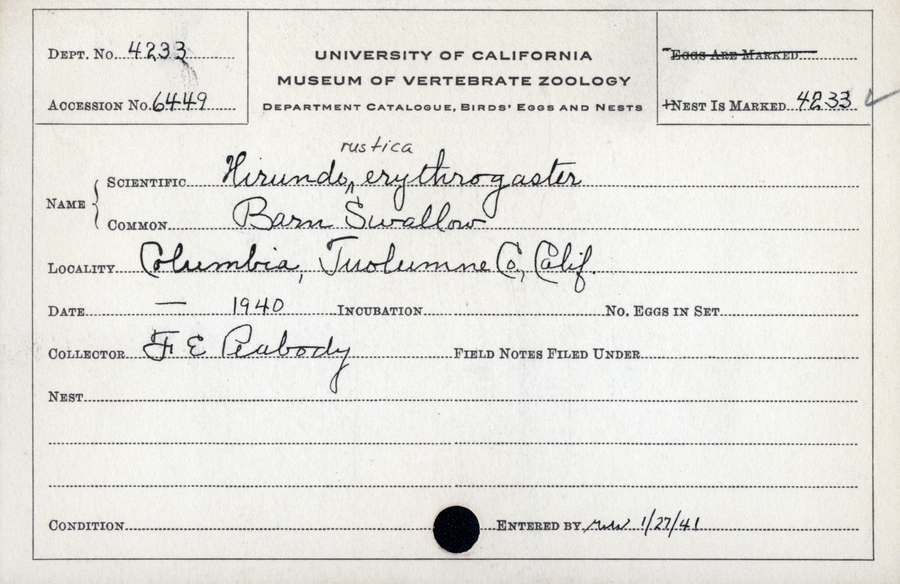 DEPT. NO. 4233
UNIVERSITY OF CALIFORNIA
MUSEUM OF VERTEBRATE ZOOLOGY
DEPARTMENT CATALOGUE, BIRDS' EGGS AND NESTS
ACCESSION NO. 6449
EGGS ARE MARKED
NEST IS MARKED 4233 ✓
rustica
NAME { SCIENTIFIC Hirundo ‸ erythrogaster
COMMON Barn Swallow
LOCALITY Columbia, Tuolumne Co., Calif.
DATE — 1940 INCUBATION NO. EGGS IN SET
COLLECTOR F E Peabody FIELD NOTES FILED UNDER
NEST
CONDITION ENTERED BY 1/27/41